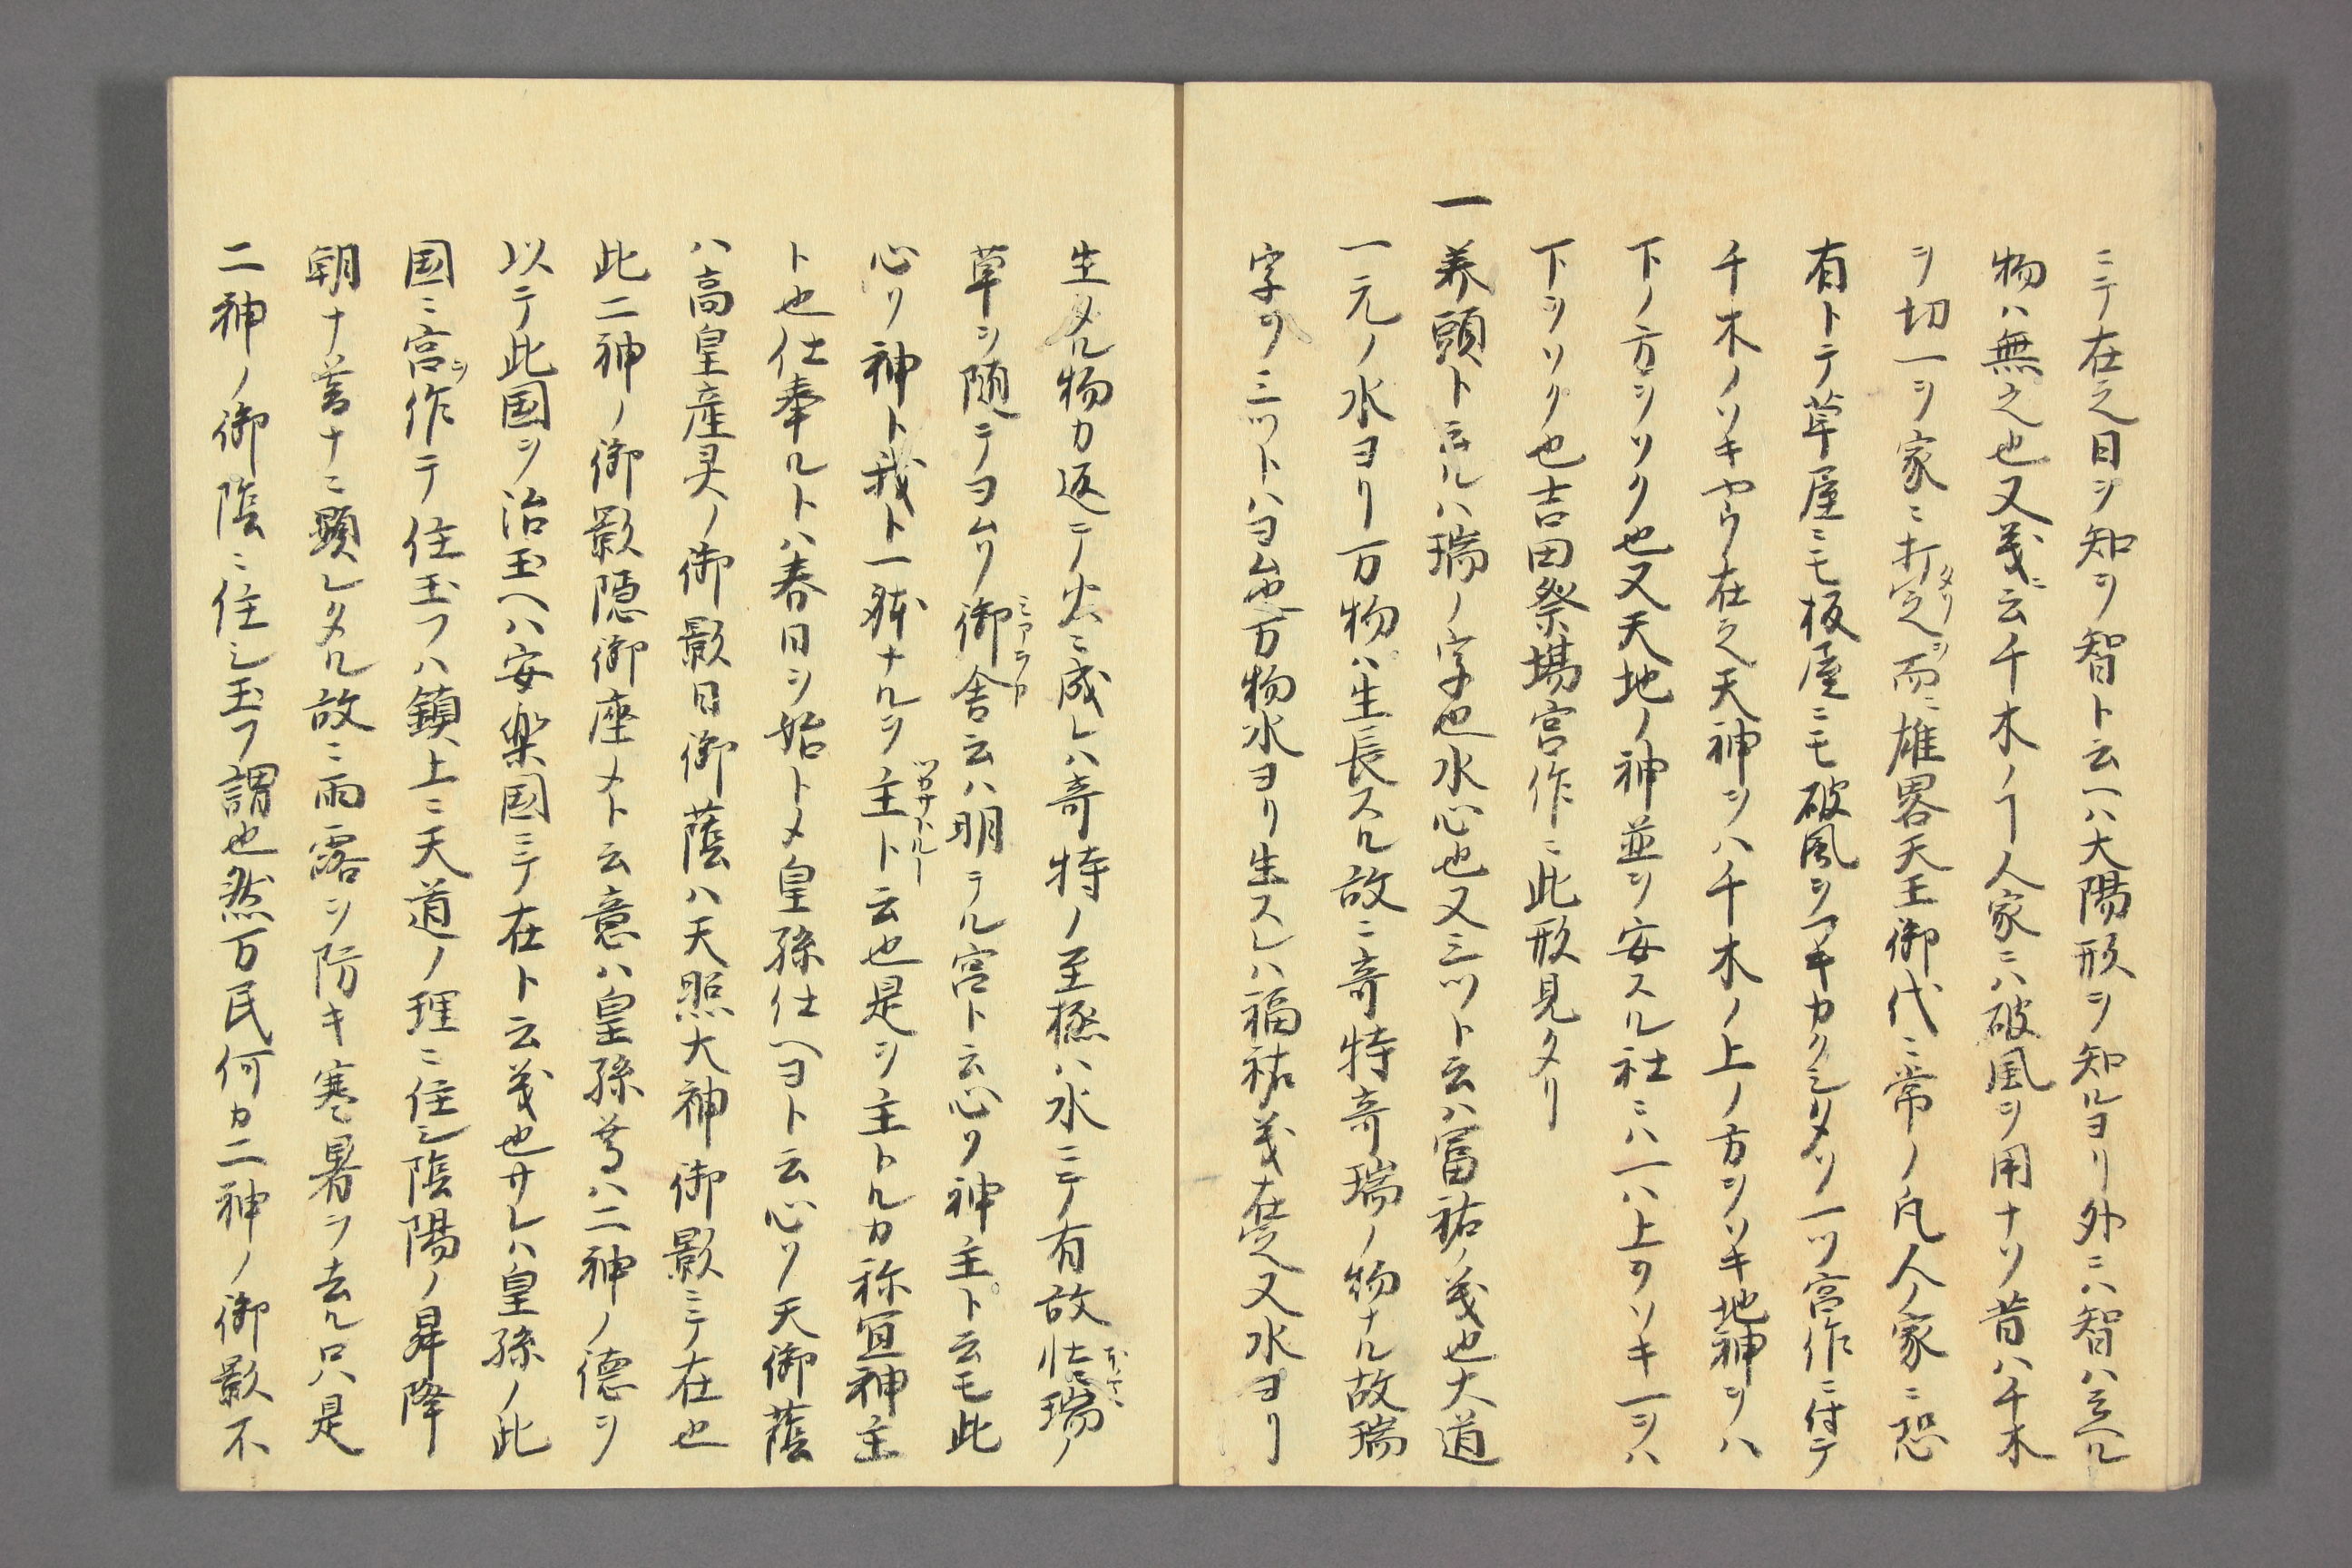 ニテ在之日ヲ知ヲ智ト云一ハ大陽形ヲ知ルヨリ外ニハ智ハ云ル
物ハ無之也又義ニ云千木ノ丁人家ニハ破風ヲ用ナソ昔ハ千木
ヲ切一ヲ家ニ打之タリヲ而ニ雄畧天王御代ニ常ノ凡人ノ家ニ恐
有トテ草屋ニモ板屋ニモ破風ヲマキカクシタソ一ツ宮作ニ付テ
千木ノソキヤウ在之天神ヲハ千木ノ上ノ方ヲソキ地神ヲハ
下ノ方ヲソク也又天地ノ神並ヲ安スル社ニハ一ハ上ヲソキ一ヲハ
下ヲソク也吉田祭場宮作ニ此形見タリ
一養頭ト云ルハ瑞ノ字也水心也又ミツト云ハ富祐ノ義也大道
一元ノ水ヨリ万物ハ生長スル故ニ奇特奇瑞ノ物ナル故瑞
字ヲミツトハヨム也万物水ヨリ生スレハ福祐ノ義在之又水ヨリ
生タル物カ返テ火ニ成レハ奇特ノ至極ハ水ニテ有故瑞ノ
草ヲ随テヨムソ御舎云ハ明テル宮ト云心ソ神主ト云モ此
心ソ神ト我ト一躰ナルヲ主ト云也是ヲ主トルカ祢宜神主
ツカサトルー
ト也仕奉ルトハ春日ヲ始トメ皇孫仕ヘヨト云心ソ天御蔭
ハ高皇産灵ノ御影日御蔭ハ天照大神御影ニテ在也
此二神ノ御影隠御座メト云意ハ皇孫尊ハ二神ノ德ヲ
以テ此国ヲ治玉ヘハ安楽国ニテ在ト云義也サレハ皇孫ノ此
国ニ宮ヲ作テ住玉フハ鎮上ニ天道ノ理ニ住シ陰陽ノ昇降
朝ナ暮ナニ顕レタル故ニ雨露ヲ防キ寒暑ヲ去ル只是
二神ノ御陰ニ住シ玉フ謂也然万民何カ二神ノ御影不